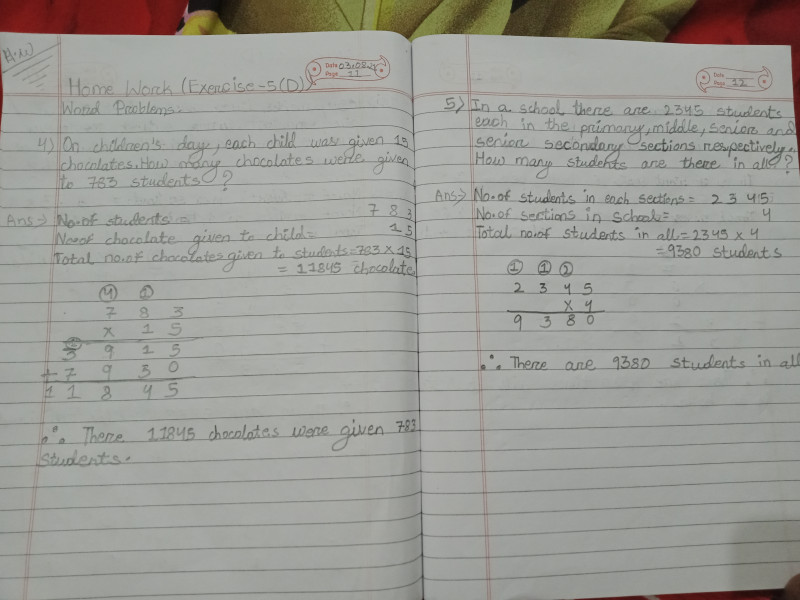 H.W
Date
Page 11
Home Work (Exercise-5(D))
Word Problems.
4) On children's day, each child was given 15
chocolates. How many chocolates were given
to 783 students?
Ans → No. of students = 783
No. of chocolate given to child = 15
Total no. of chocolates given to students = 783 × 15
= 11845 chocolate
4 1
7 8 3
× 1 5
3 9 1 5
+ 7 9 3 0
1 1 8 4 5
∴ There 11845 chocolates were given 783
students.
Date
Page 12
5) In a school there are 2345 students
each in the primary, middle, senior and
senior secondary sections respectively.
How many students are there in all?
Ans → No. of students in each sections = 2345
No. of sections in school = 4
Total no. of students in all = 2345 × 4
= 9380 students
1 1 2
2 3 4 5
× 4
9 3 8 0
∴ There are 9380 students in all